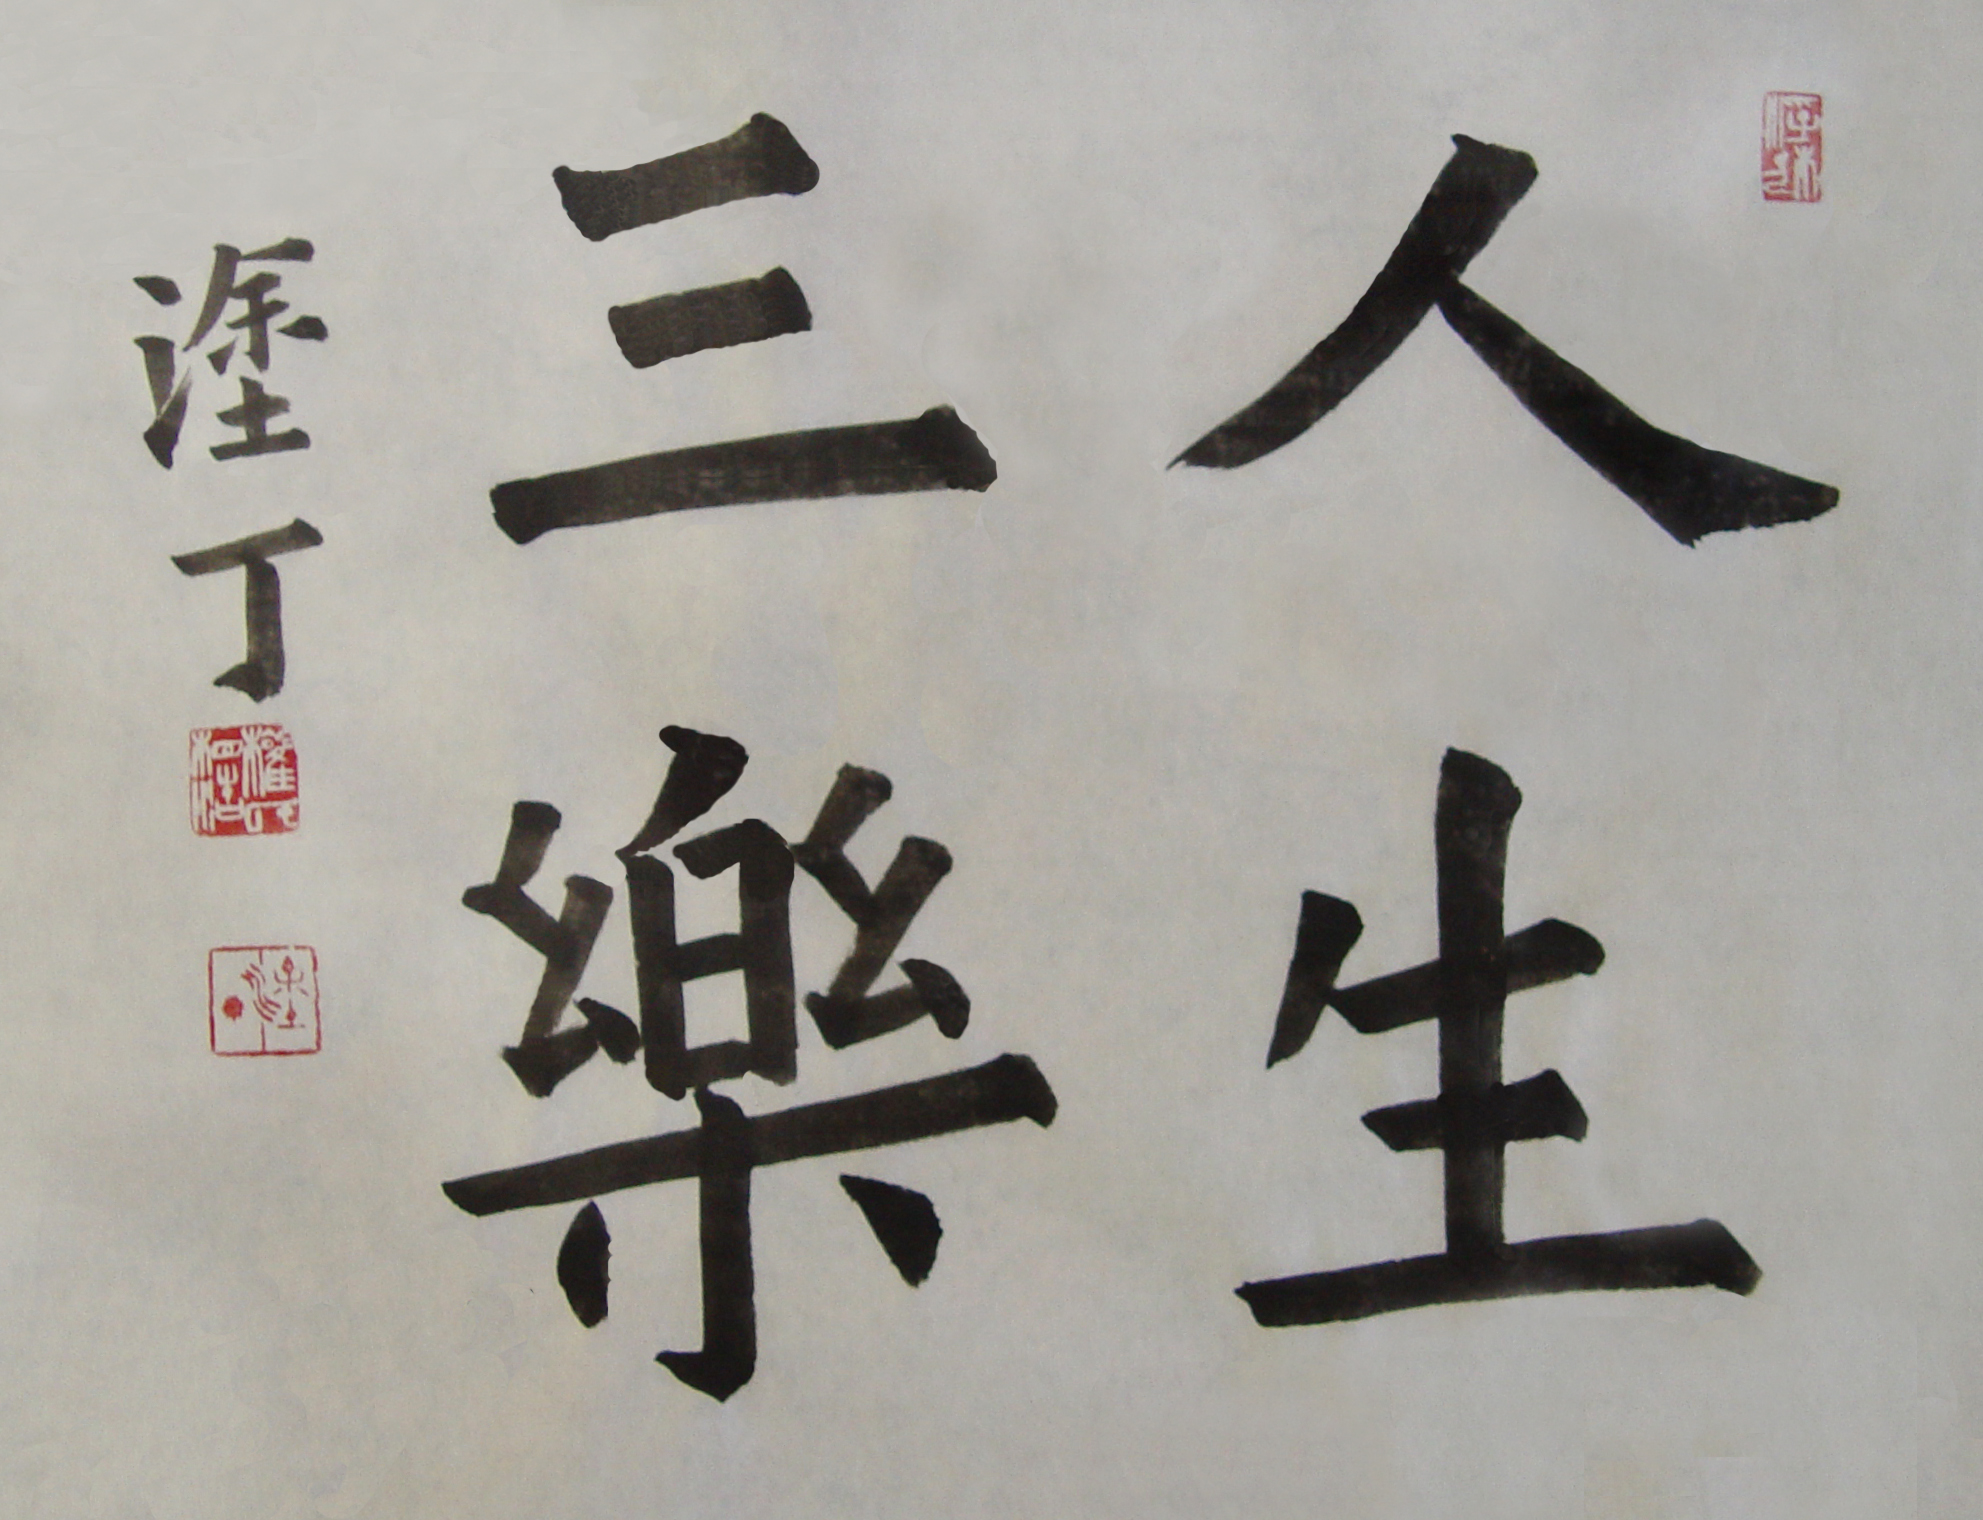 人生
三樂
塗丁